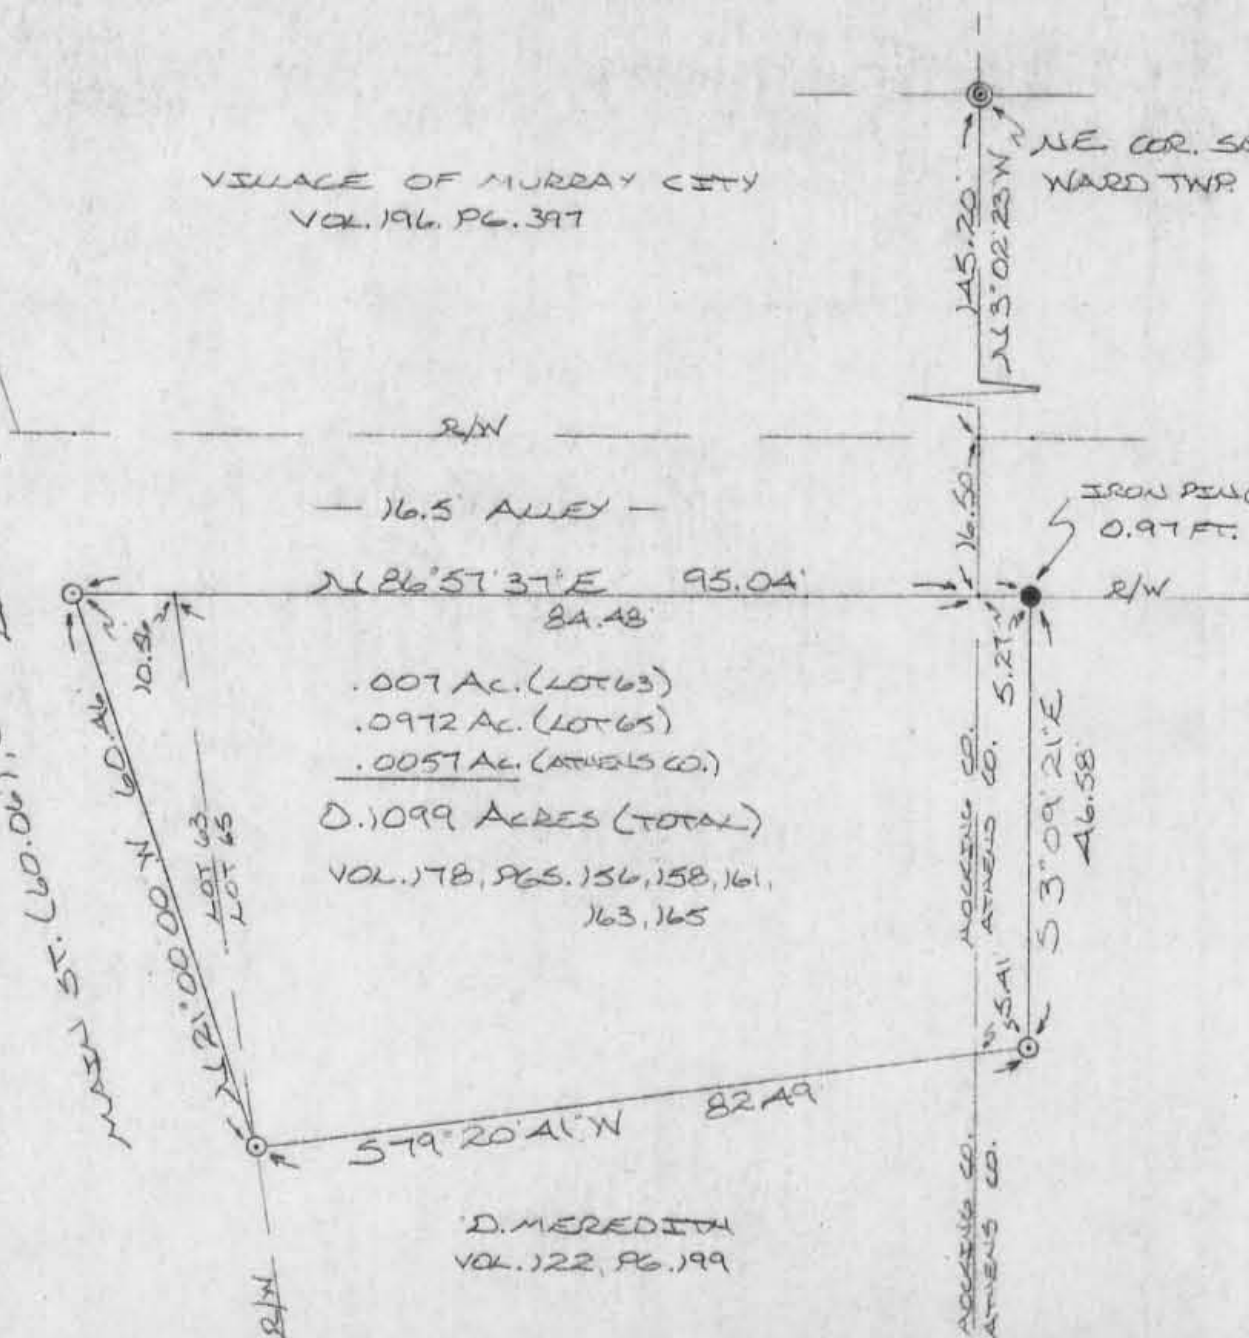 VILLAGE OF MURRAY CITY
VOL. 196. PG. 397
NE COR.
WARD TWP.
145.20'
N 3°02'23" W
R/W
— 16.5' ALLEY —
16.50
IRON PIN
0.97 FT.
N 86°57'37" E 95.04'
84.48'
R/W
10.56
5.27
.007 AC. (LOT 63)
.0972 AC. (LOT 65)
.0057 AC. (ATHENS CO.)
0.1099 ACRES (TOTAL)
VOL. 178, PGS. 156, 158, 161,
163, 165
N 21°00'00" W 60.46
LOT 63
LOT 65
MAIN ST. (60.06')
HOCKING CO.
ATHENS CO.
S 3°09'21" E
46.58'
5.41
S 79°20'41" W 82.49'
D. MEREDITH
VOL. 122, PG. 199
R/W
HOCKING CO.
ATHENS CO.